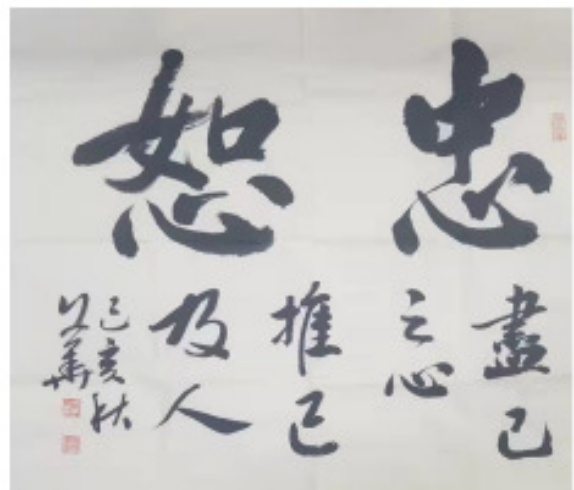 忠恕
盡己
之心
推己
及人
己亥秋